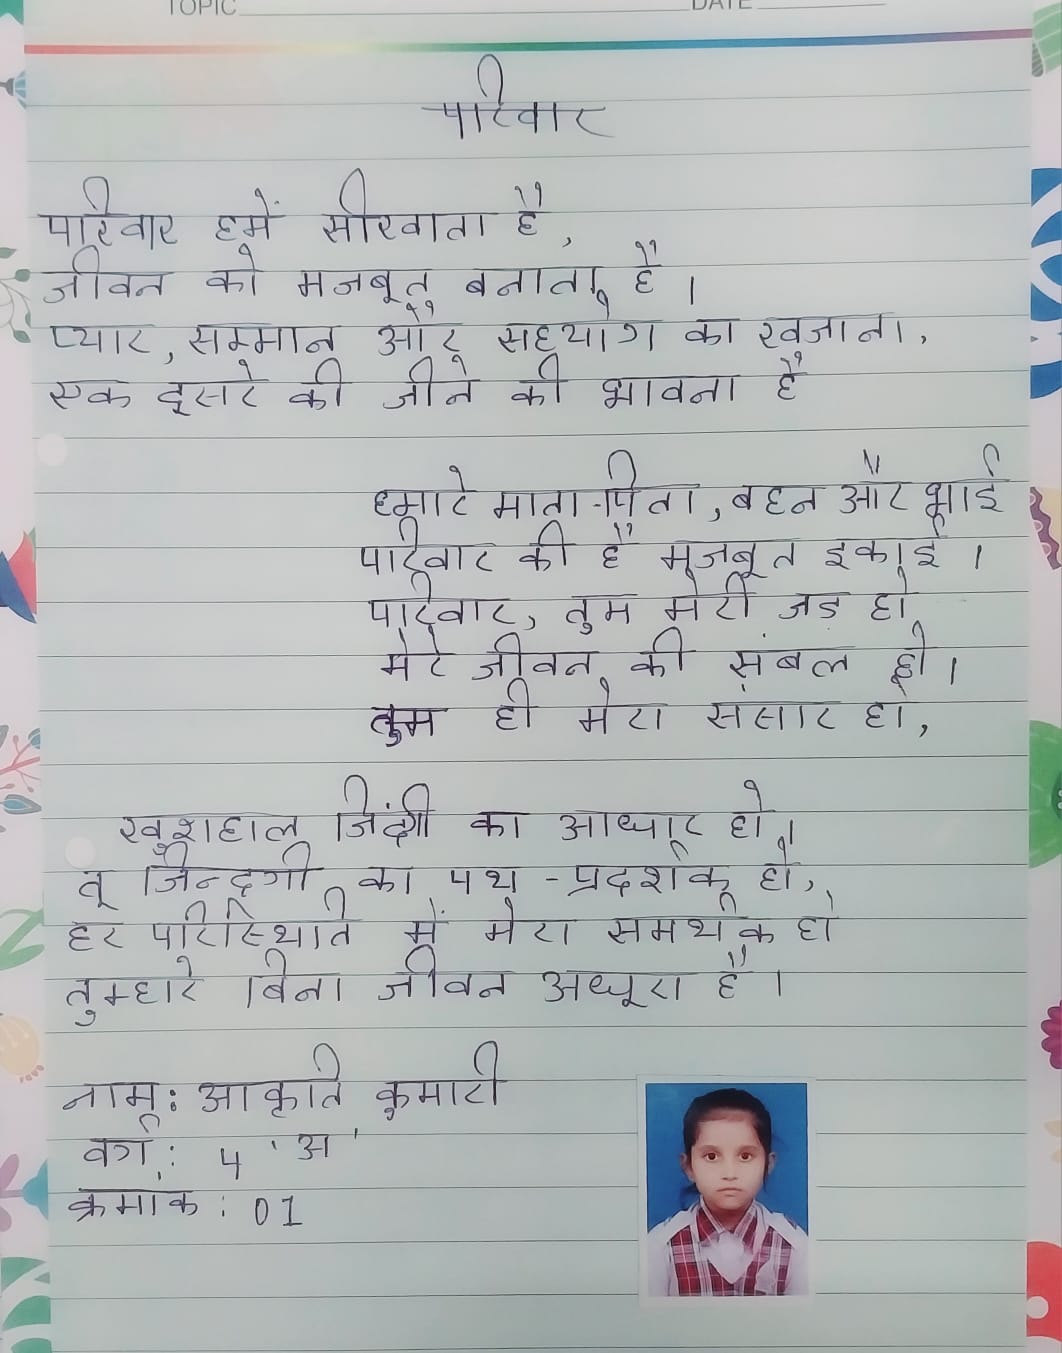 TOPIC
DATE
परिवार
परिवार हमें सीखाता है,
जीवन को मजबूत बनाता है।
प्यार, सम्मान और सहयोग का खजाना,
एक दूसरे की जीने की भावना है
हमारे माता-पिता, बहन और भाई
परिवार की है मजबूत इकाई।
परिवार, तुम मेरी जड़ हो
मेरे जीवन की संबल हो।
तुम ही मेरा संसार हो,
खुशहाल जिंदगी का आधार हो।
तू जिन्दगी का पथ-प्रदर्शक हो,
हर परिस्थिति में मेरा समर्थक हो
तुम्हारे बिना जीवन अधूरा है।
नाम: आकृति कुमारी
वर्ग: 4 'अ'
क्रमांक: 01